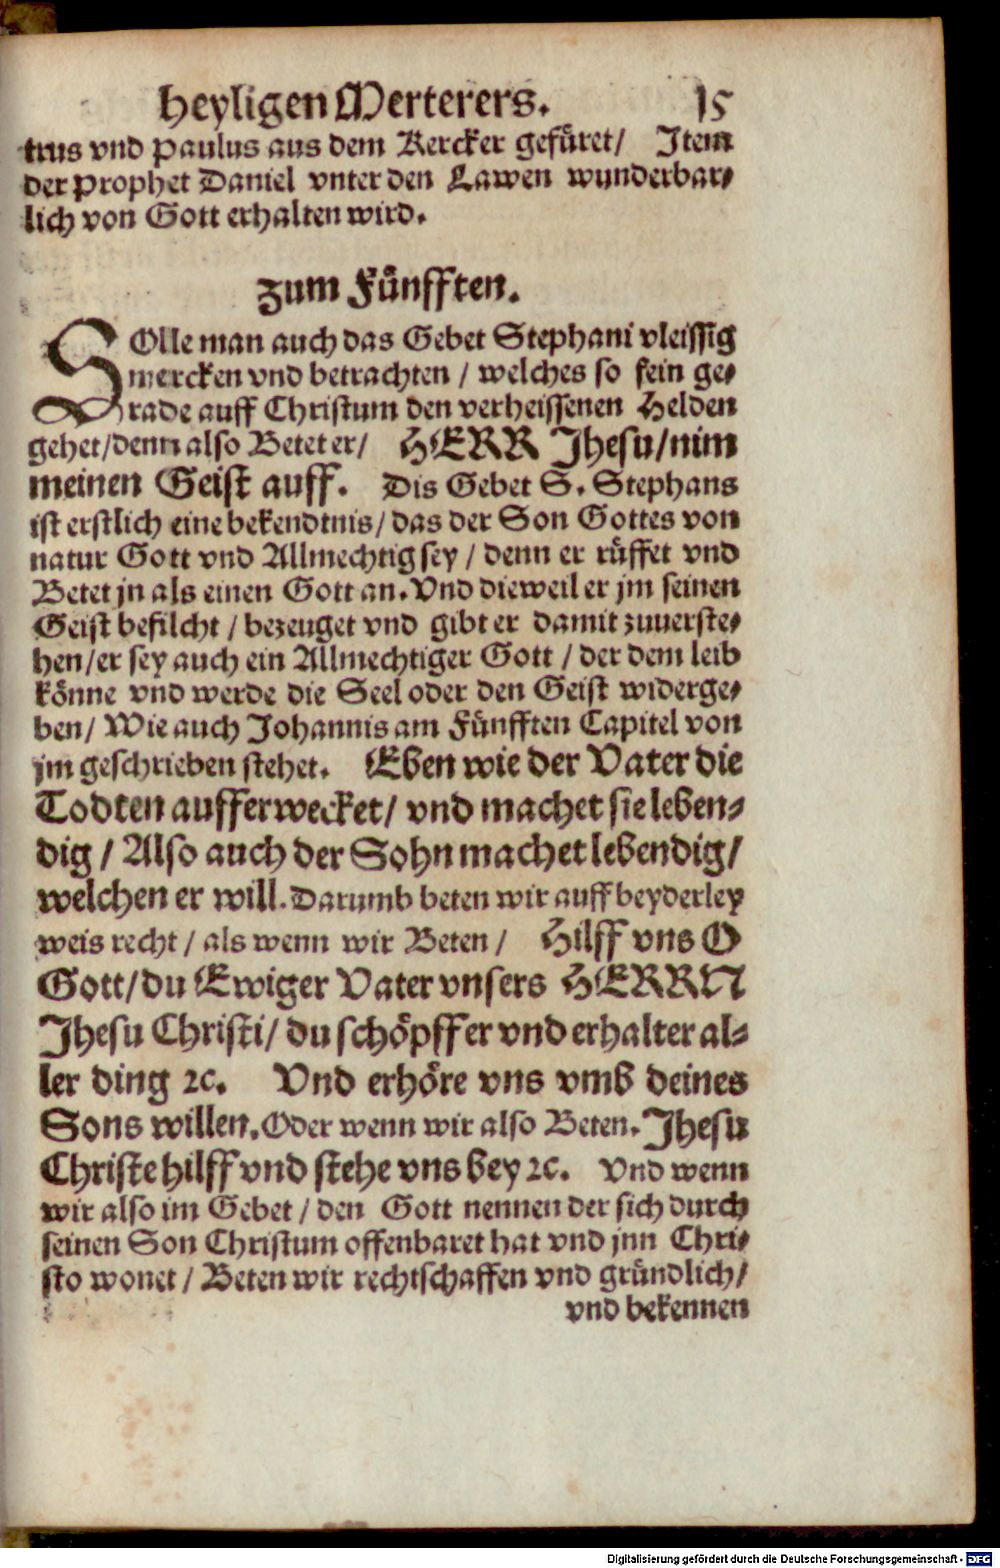 heyligen Merterers. 15
trus vnd Paulus aus dem Kercker gefüret/ Item
der Prophet Daniel vnter den Lawen wunderbar⸗
lich von Gott erhalten wird.
Zum Fünfften.
SOlle man auch das Gebet Stephani vleissig
mercken vnd betrachten / welches so fein ge⸗
rade auff Christum den verheissenen Helden
gehet/denn also Betet er/ HERR Jhesu/nim
meinen Geist auff. Dis Gebet S. Stephans
ist erstlich eine bekendtnis/ das der Son Gottes von
natur Gott vnd Allmechtig sey / denn er rüffet vnd
Betet jn als einen Gott an. Vnd dieweil er jm seinen
Geist befilcht / bezeuget vnd gibt er damit zuuerste⸗
hen/er sey auch ein Allmechtiger Gott / der dem leib
könne vnd werde die Seel oder den Geist widerge⸗
ben/ Wie auch Johannis am Fünfften Capitel von
jm geschrieben stehet. Eben wie der Vater die
Todten aufferwecket/ vnd machet sie leben⸗
dig / Also auch der Sohn machet lebendig/
welchen er will. Darumb beten wir auff beyderley
weis recht / als wenn wir Beten / Hilff vns O
Gott/du Ewiger Vater vnsers HERRN
Jhesu Christi/ du schöpffer vnd erhalter al⸗
ler ding ꝛc. Vnd erhöre vns vmb deines
Sons willen. Oder wenn wir also Beten. Jhesu
Christe hilff vnd stehe vns bey ꝛc. Vnd wenn
wir also im Gebet / den Gott nennen der sich durch
seinen Son Christum offenbaret hat vnd jnn Chri⸗
sto wonet / Beten wir rechtschaffen vnd gründlich/
vnd bekennen
Digitalisierung gefördert durch die Deutsche Forschungsgemeinschaft - DFG